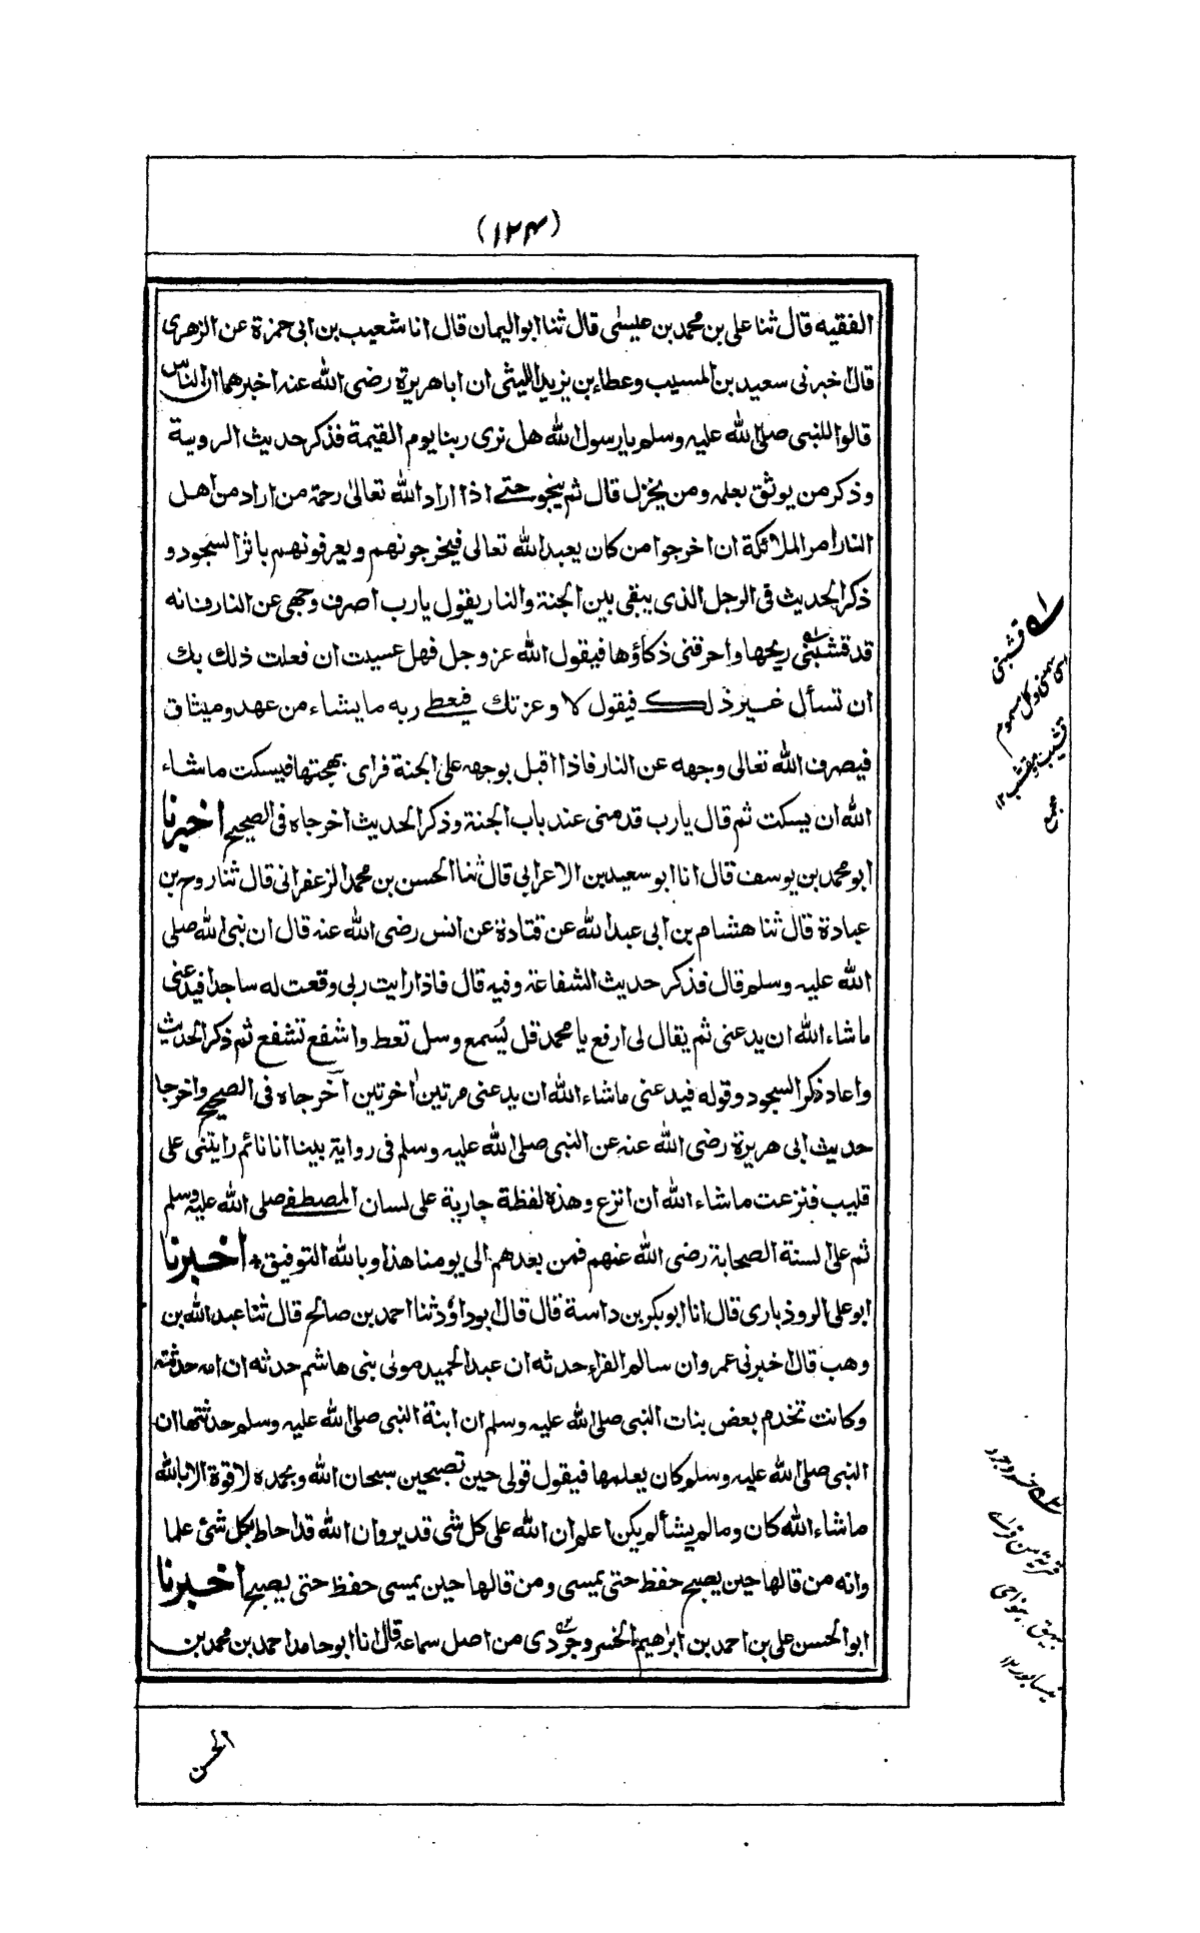 (١٢٤)
الفقيه قال ثنا على بن محمد بن عيسٰى قال ثنا ابو اليمان قال انا شعيب بن ابى حمزة عن الزهرى
قال اخبرنى سعيد بن المسيب وعطاء بن يزيد الليثى ان ابا هريرة رضى الله عنه اخبرهما ان الناس
قالوا للنبى صلى الله عليه وسلم يا رسول الله هل نرى ربنا يوم القيمة فذكر حديث الروية
وذكر من يوثق بعمله ومن يخزل قال ثم ينجو حتے اذا اراد الله تعالىٰ رحمة من اراد من اهل
النار امر الملائكة ان اخرجوا من كان يعبد الله تعالى فيخرجونهم ويعرفونهم باثر السجود و
ذكر الحديث فى الرجل الذى يبقى بين الجنة والنار يقول يارب اصرف وجهى عن النار فانه
قد قشبنى ريحها واحرقنى ذكاؤها فيقول الله عز وجل فهل عسيت ان فعلت ذلك بك
ان تسأل غير ذلك فيقول لا وعزتك فيعطے ربه ما يشاء من عهد وميثاق
فيصرف الله تعالى وجهه عن النار فاذا اقبل بوجهه على الجنة فراى بهجتها فيسكت ما شاء
الله ان يسكت ثم قال يارب قدمنى عند باب الجنة وذكر الحديث اخرجاه فى الصحيح اخبرنا
ابو محمد بن يوسف قال انا ابو سعيد بن الاعرابى قال ثنا الحسن بن محمد الزعفرانى قال ثنا روح بن
عبادة قال ثنا هشام بن ابى عبد الله عن قتادة عن انس رضى الله عنه قال ان نبى الله صلى
الله عليه وسلم قال فذكر حديث الشفاعة وفيه قال فاذا رايت ربى وقعت له ساجدا فيدعنى
ما شاء الله ان يدعنى ثم يقال لى ارفع يا محمد قل يُسمع وسل تعط واشفع تشفع ثم ذكر الحديث
واعاد ذكر السجود وقوله فيدعنى ما شاء الله ان يدعنى مرتين اخرتين آخرجاه فى الصحيح واخرجا
حديث ابى هريرة رضى الله عنه عن النبى صلى الله عليه وسلم فى رواية بينا انا نائم رايتنى على
قليب فنزعت ما شاء الله ان انزع وهذه لفظة جارية على لسان المصطفے صلى الله عليه وسلم
ثم على السنة الصحابة رضى الله عنهم فمن بعدهم الى يومنا هذا وبالله التوفيق + اخبرنا
ابو على الروذبارى قال انا ابو بكر بن داسة قال قال ابو داؤد ثنا احمد بن صالح قال ثنا عبد الله بن
وهب قال اخبرنى عمرو ان سالم الفراء حدثه ان عبد الحميد مولى بنى هاشم حدثه ان امه حدثته
وكانت تخدم بعض بنات النبى صلى الله عليه وسلم ان ابنة النبى صلى الله عليه وسلم حدثتها ان
النبى صلى الله عليه وسلم كان يعلمها فيقول قولى حين تصبحين سبحان الله وبحمده لا قوة الا بالله
ما شاء الله كان وما لم يشأ لم يكن اعلم ان الله على كل شى قدير وان الله قد احاط بكل شئ علما
وانه من قالها حين يصبح حفظ حتى يمسى ومن قالها حين يمسى حفظ حتى يصبح اخبرنا
ابو الحسن على بن احمد بن ابرٰهيم الخسروجردى من اصل سماعه قال انا ابو حامد احمد بن محمد بن
قشبنى
اى سمنى وكل مسموم
قشيب ومقشب ١٢
مجمع
خسروجرد
قرية من قرى
بيهق بنواحى
نيسابور ١٢
الحسن